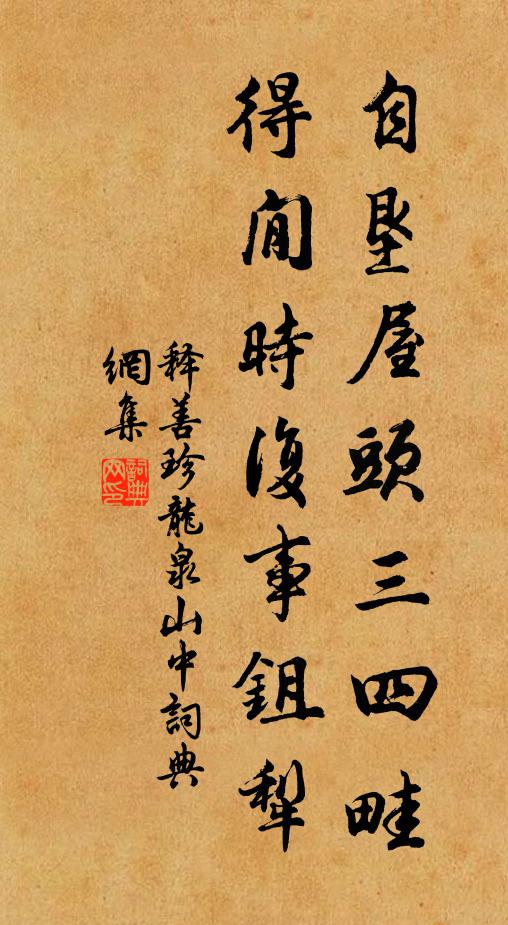 自墾屋頭三四畦
得閒時復事鉏犁
釋善珍龍泉山中詞典
網集
詞典
网印